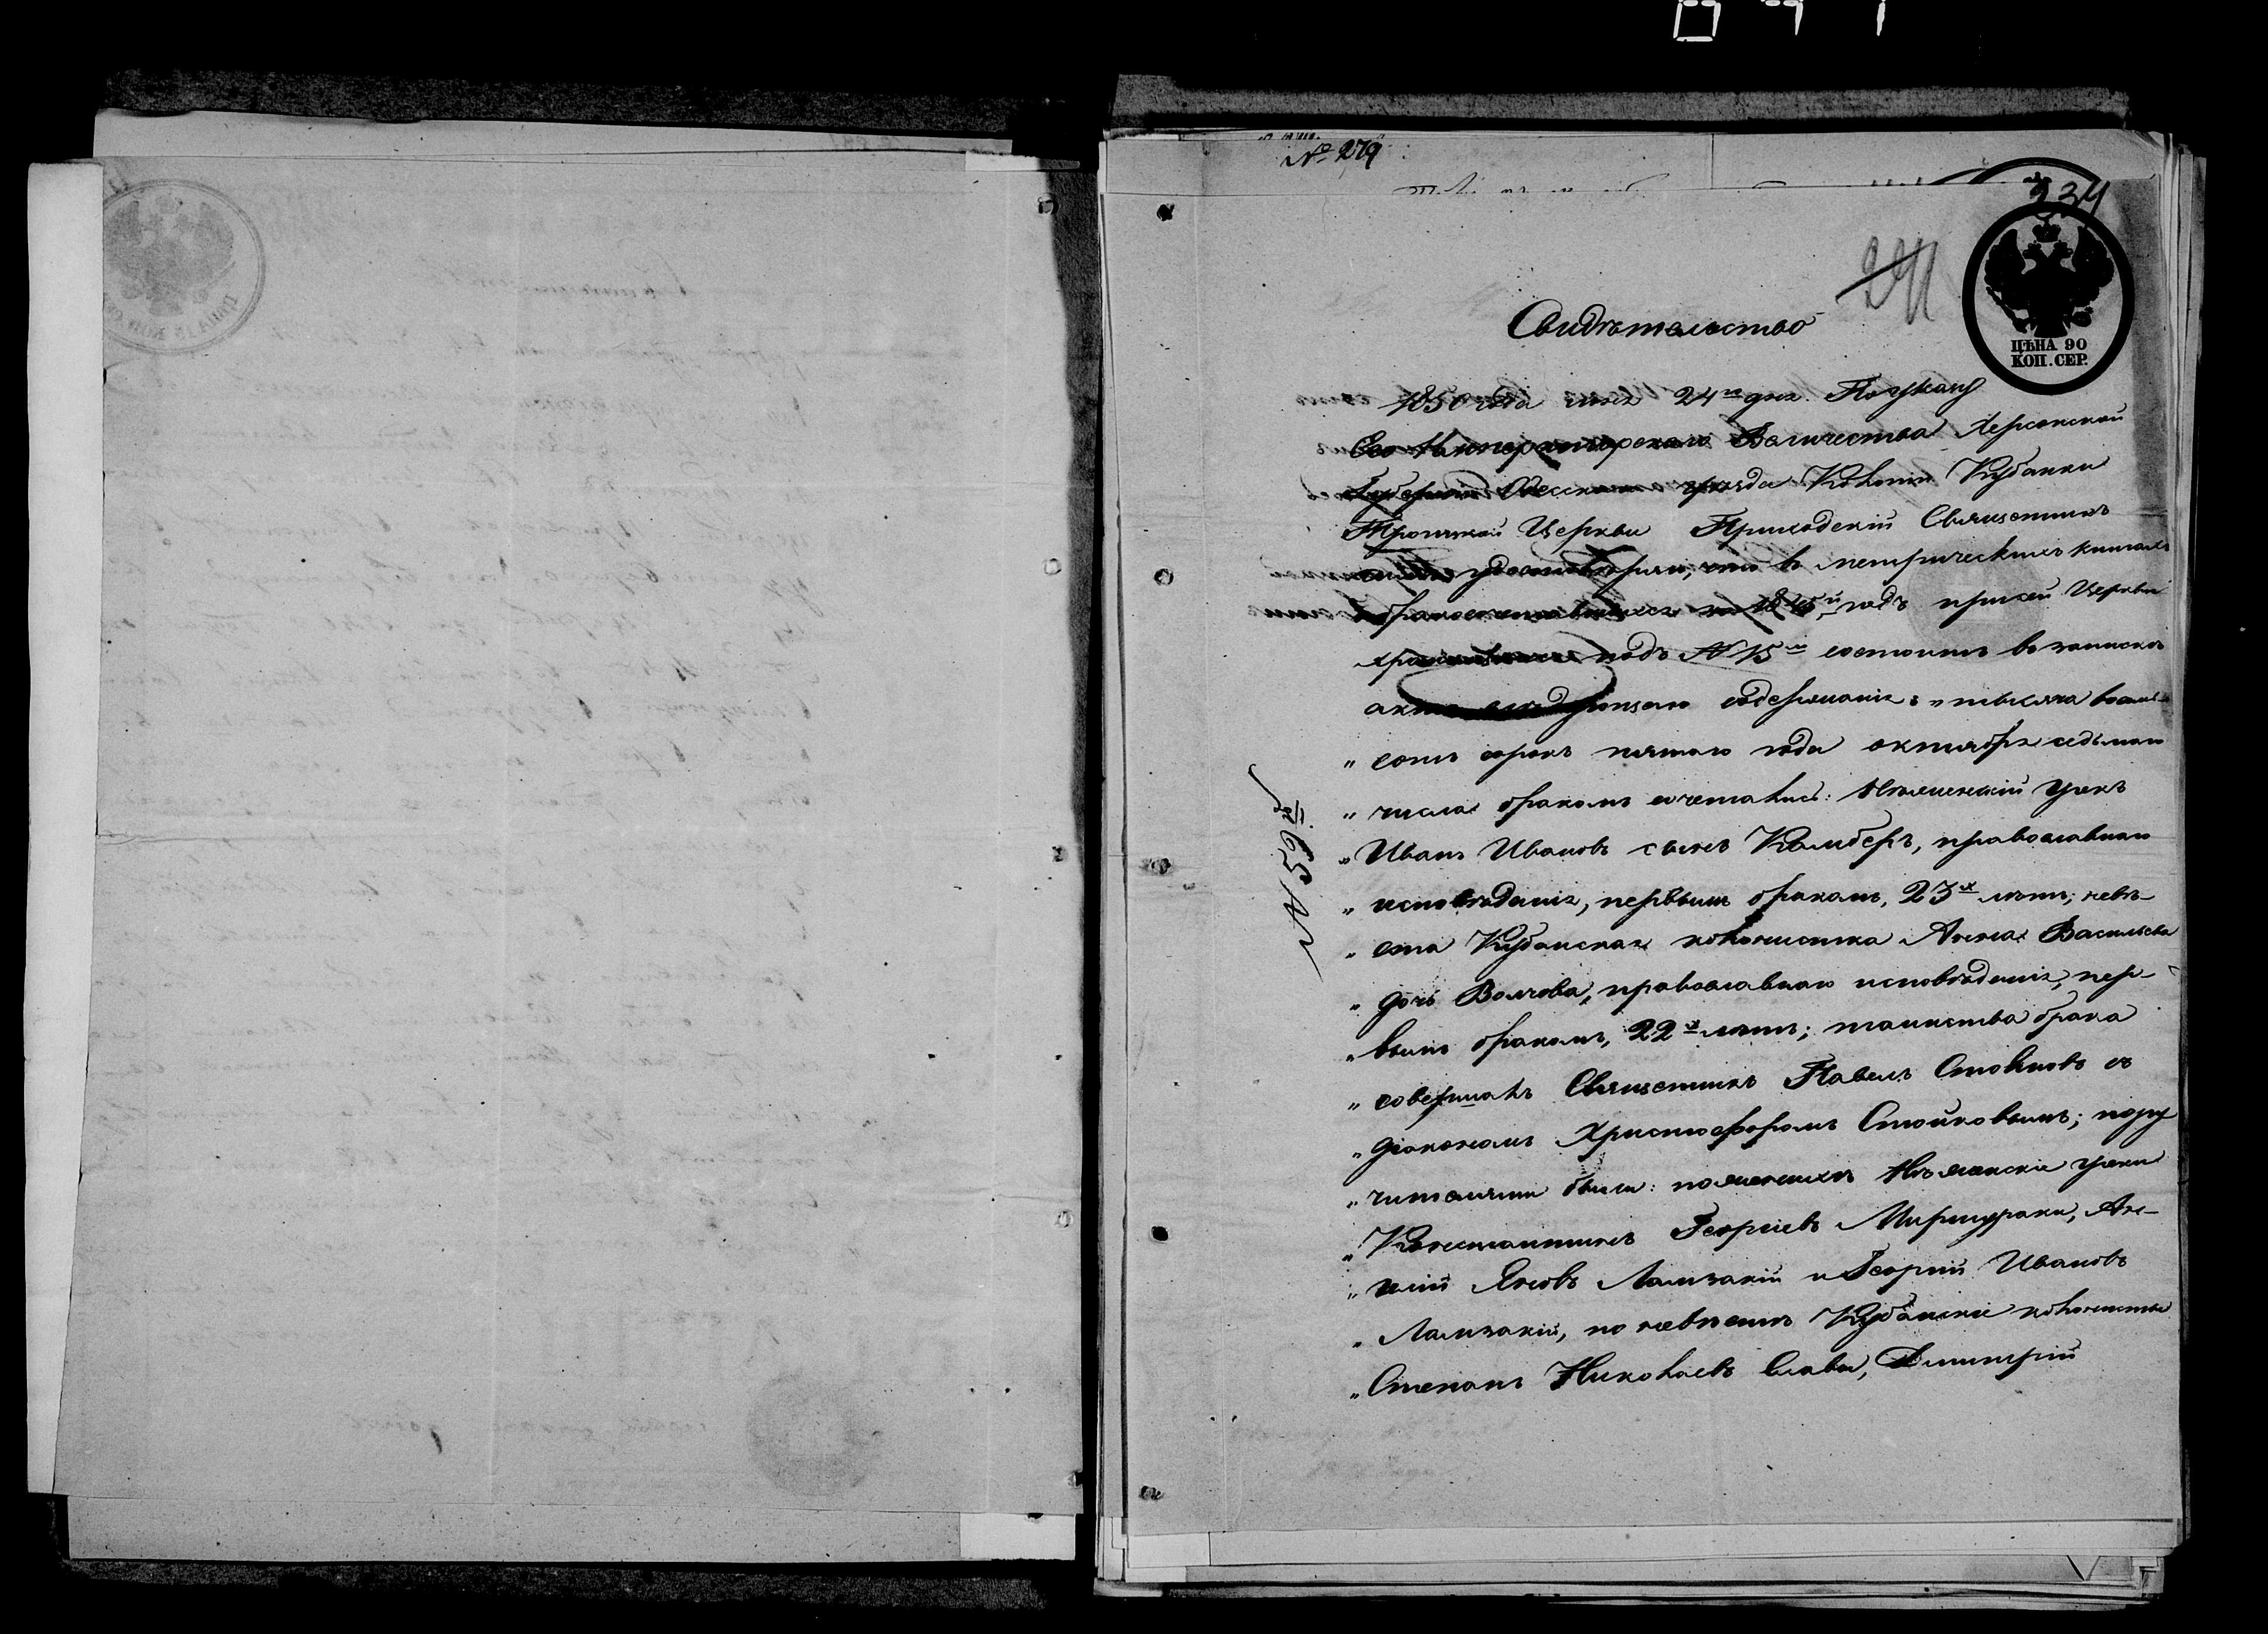 № 279
234
241
ЦѢНА 90
КОП. СЕР.
Свидѣтельство
1850 года мая 24го дня. По указу
Его Императорскаго Величества Херсонской
Губерніи Одесскаго уѣзда Колоніи Кубанки
Троицкой Церкви Приходскій Священникъ
удостовѣряю, что въ метрическихъ книгахъ
бракосочетавшихся за 1845й годъ при сей Церкви
хранящихся подъ № 15м состоитъ въ запискѣ
актъ слѣдующаго содержанія: „тысяча восемь
„ сотъ сорокъ пятаго года октября седьмаго
„ числа бракомъ сочетались: Нѣжинскій грекъ
„ Иванъ Ивановъ сынъ Камберъ, православнаго
„ исповѣданія, первымъ бракомъ, 23х лѣтъ; невѣ-
„ ста Кубанская колонистка Анна Васильева
„ дочь Волчева, православнаго исповѣданія, пер-
„ вымъ бракомъ, 22х лѣтъ; таинства брака
„ совершалъ Священникъ Павелъ Стойковъ съ
„ діакономъ Христофоромъ Стойковымъ; пору
„ чителями были: по женихѣ Нѣжинскіе греки
„ Константинъ Георгіевъ
„ Яновъ Ламзакій и Георгій Ивановъ
„ Ламзакій, по невѣстѣ Кубанскіе колонисты
„ Степанъ Николаевъ Славъ, Димитрій
№ 59й